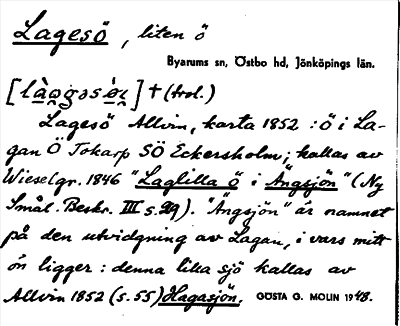 Lagesö, liten ö
Byarums sn, Östbo hd, Jönköpings län.
† (trol.)
Lagesö Allvin, karta 1852 : ö i La-
gan Ö Tokarp SÖ Eckersholm; kallas av
Wieselgr. 1846 "Laglilla ö i Ängsjön" (Ny
Smål. Beskr. III s. 29). "Ängsjön" är namnet
på den utvidgning av Lagan, i vars mitt
ön ligger : denna lilla sjö kallas av
Allvin 1852 (s. 55) Hagasjön. GÖSTA G. MOLIN 1948.